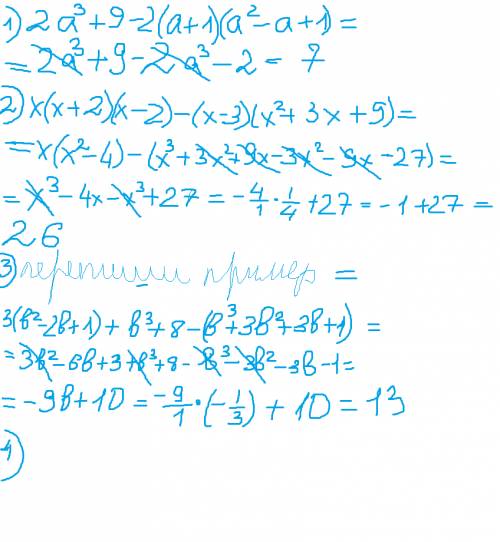 1) 2a³+9-2(a+1)(a²-a+1)=
=2a³+9-2a³-2= 7
2) x(x+2)(x-2)-(x-3)(x²+3x+9)=
=x(x²-4)-(x³+3x²+9x-3x²-9x-27)=
=x³-4x-x³+27=-4/1·1/4+27=-1+27=
26
3) перепиши пример =
3(b²-2b+1)+b³+8-(b³+3b²+3b+1)=
=3b²-6b+3+b³+8-b³-3b²-3b-1=
=-9b+10=-9/1·(-1/3)+10=13
4)